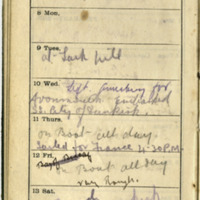 8 Mon.
9 Tues.
at Lark Hill
10 Wed. Left Amesbury for
Avonmouth embarked
SS. City of Dunkirk.
11 Thurs.
on Boat all day.
Sailed for France 4.30 P.M.
12 Fri.
on Boat all day
very Rough.
13 Sat.